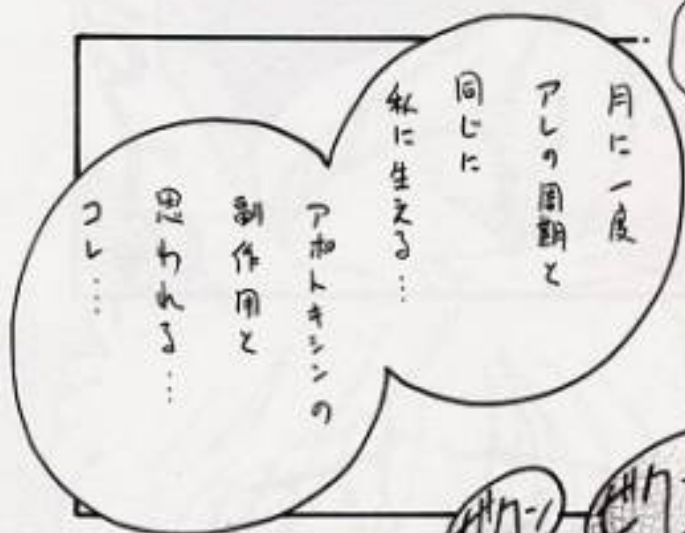 月に一度
アレの周期と
同じに
私に生える…
アポトキシンの
副作用と
思われる…
コレ…